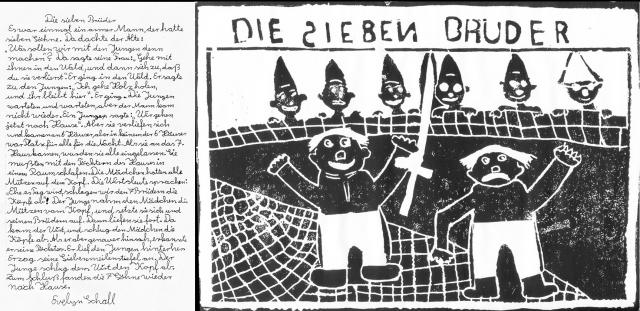 Die sieben Brüder
Es war einmal ein armer Mann, der hatte
sieben Söhne. Da dachte der Alte:
„Was sollen wir mit den Jungen denn
machen?" Da sagte seine Frau: „Gehe mit
ihnen in den Wald, und dann sieh zu, daß
du sie verlierst." Er ging in den Wald. Er sagte
zu den Jungens: „Ich gehe Holz holen,
und ihr bleibt hier." Er ging. Die Jungen
warteten und warteten, aber der Mann kam
nicht wieder. Ein Junge sagte: „Wir gehen
jetzt nach Hause." Aber sie verliefen sich
und kamen an 6 Häuser, aber in keinem der 6 Häuser
war Platz für alle für die Nacht. Als sie an das 7.
Haus kamen, wurden sie alle eingelassen. Sie
mußten mit den Töchtern des Hauses in
einem Raum schlafen. Die Mädchen hatten alle
Mützen auf dem Kopf. Die Wirtsleute sprachen:
„Ehe es Tag wird, schlagen wir den 7 Brüdern die
Köpfe ab." Der Junge nahm den Mädchen die
Mützen vom Kopf, und setzte sie sich und
seinen Brüdern auf. Dann liefen sie fort. Da
kam der Wirt und schlug den Mädchen die
Köpfe ab. Als er aber genauer hinsah, erkannte
er seine Töchter. Er lief den Jungen hinterher.
Er zog seine Siebenmeilenstiefel an. Der
Junge schlug dem Wirt den Kopf ab.
Zum Schluß fanden die 7 Söhne wieder
nach Hause.
Evelyn Schall
DIE SIEBEN BRÜDER